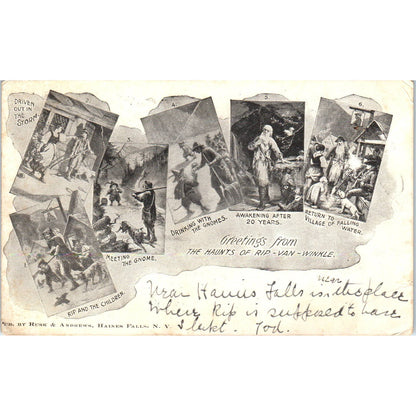 DRIVEN
OUT IN
THE
STORM.
2.
3.
4.
5.
6.
RIP AND THE CHILDREN.
MEETING THE GNOME.
DRINKING WITH
THE GNOMES.
AWAKENING AFTER
20 YEARS.
RETURN TO
VILLAGE OF FALLING
WATER.
Greetings from
THE HAUNTS OF RIP-VAN-WINKLE.
near
Near Haines Falls is the place
Where Rip is supposed to have
Slept.
PUB. BY RUSK & ANDREWS, HAINES FALLS, N. Y.